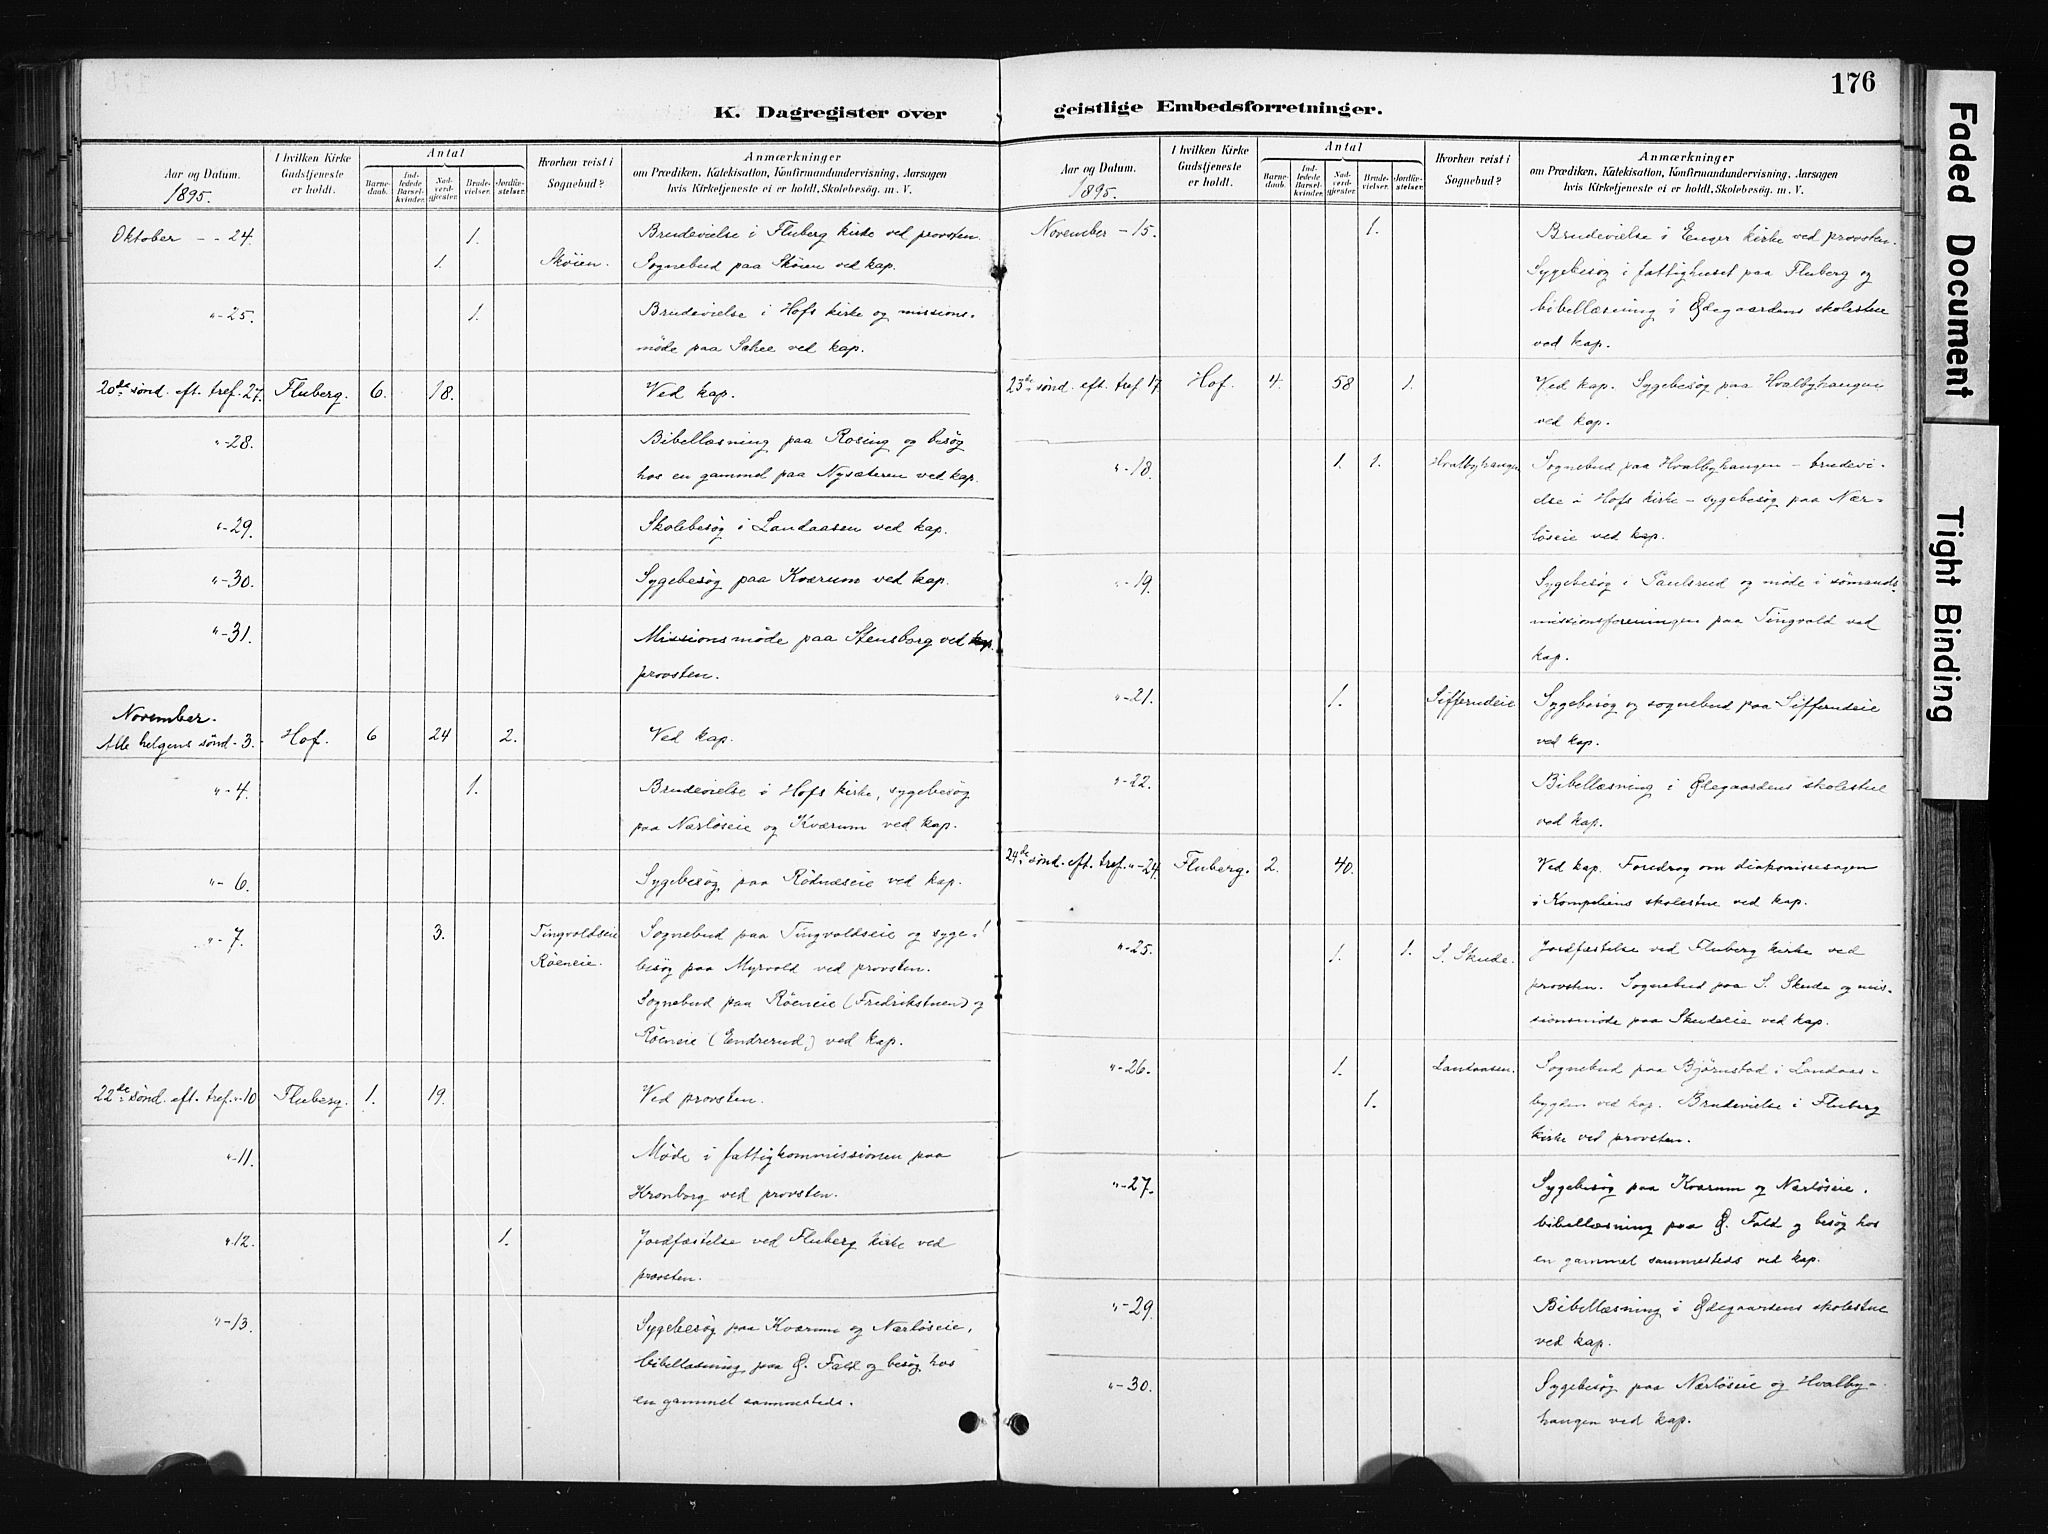 176
K. Dagregister over
geistlige Embedsforretninger.
Faded Document
Tight Binding
Aar og Datum.
1895.
I hvilken Kirke Gudstjeneste er holdt.
Antal
Barnedaab.
Indledede Barselkvinder.
Nadverdgjester.
Brudevielser.
Jordfæstelser.
Hvorhen reist i Sognebud?
Anmærkninger
om Prædiken, Katekisation, Konfirmandundervisning, Aarsagen
hvis Kirketjeneste ei er holdt, Skolebesøg. m. V.
Oktober - - 24. 1. Brudevielse i Fluberg kirke ved provsten.
1. Skøien. Sognebud paa Skøien ved kap.
"-25. 1. Brudevielse i Hofs kirke og missions-
møde paa Schee ved kap.
20de sønd. eft. tref. 27. Fluberg. 6. 18. Ved kap.
"-28. Bibellæsning paa Rosing og besøg
hos en gammel paa Nysæteren ved kap.
"-29. Skolebesøg i Landaasen ved kap.
"-30. Sygebesøg paa Kværum ved kap.
"-31. Missionsmøde paa Stensborg ved kap.
provsten.
November.
Alle helgens sønd. 3. Hof. 6 24 2. Ved kap.
"-4. 1. Brudevielse i Hofs kirke, sygebesøg
paa Nærløseie og Kværum ved kap.
"-6. Sygebesøg paa Rødnæseie ved kap.
"-7. 3. Tingvoldseie Sognebud paa Tingvoldseie og syge-
Røeneie. besøg paa Myrvold ved provsten.
Sognebud paa Røeneie (Fredrikstuen) og
Røeneie (Endrerud) ved kap.
22de sønd. eft. tref. "-10 Fluberg. 1. 19. Ved provsten.
"-11. Møde i fattigkommissionen paa
Kronborg ved provsten.
"-12. 1. Jordfæstelse ved Fluberg kirke ved
provsten.
"-13. Sygebesøg paa Kværum og Nærløseie,
bibellæsning paa Ø. Fald og besøg hos
en gammel sammesteds.
Aar og Datum.
1895.
I hvilken Kirke Gudstjeneste er holdt.
Antal
Barnedaab.
Indledede Barselkvinder.
Nadverdgjester.
Brudevielser.
Jordfæstelser.
Hvorhen reist i Sognebud?
Anmærkninger
om Prædiken, Katekisation, Konfirmandundervisning, Aarsagen
hvis Kirketjeneste ei er holdt, Skolebesøg. m. V.
November - 15. 1. Brudevielse i Enger kirke ved provsten.
Sygebesøg i fattighuset paa Fluberg og
bibellæsning i Ødegaardens skolestue
ved kap.
23de sønd. eft. tref. 17 Hof. 4. 58 1. Ved kap. Sygebesøg paa Hvalbyhaugen
ved kap.
"-18. 1. 1. Hvalbyhaugen Sognebud paa Hvalbyhaugen - brudevi-
else i Hofs kirke - sygebesøg paa Nær-
løseie ved kap.
"-19. Sygebesøg i Paulsrud og møde i sømands-
missionsforeningen paa Tingvold ved
kap.
"-21. 1. Siffrudeie Sygebesøg og sognebud paa Siffrudeie
ved kap.
"-22. Bibellæsning i Ødegaardens skolestue
ved kap.
24de sønd. eft. tref. "-24. Fluberg. 2. 40. Ved kap. Foredrag om diakonissesagen
i Kompeliens skolestue ved kap.
"-25. 1. 1. S. Skude. Jordfæstelse ved Fluberg kirke ved
provsten. Sognebud paa S. Skude og mis-
sionsmøde paa Skudeeie ved kap.
"-26. 1. Landaasen. Sognebud paa Bjørnstad i Landaas-
1. bygden ved kap. Brudevielse i Fluberg
kirke ved provsten.
"-27. Sygebesøg paa Kværum og Nærløseie,
bibellæsning paa Ø. Fald og besøg hos
en gammel sammesteds ved kap.
"-29. Bibellæsning i Ødegaardens skolestue
ved kap.
"-30. Sygebesøg paa Nærløseie og Hvalby-
haugen ved kap.